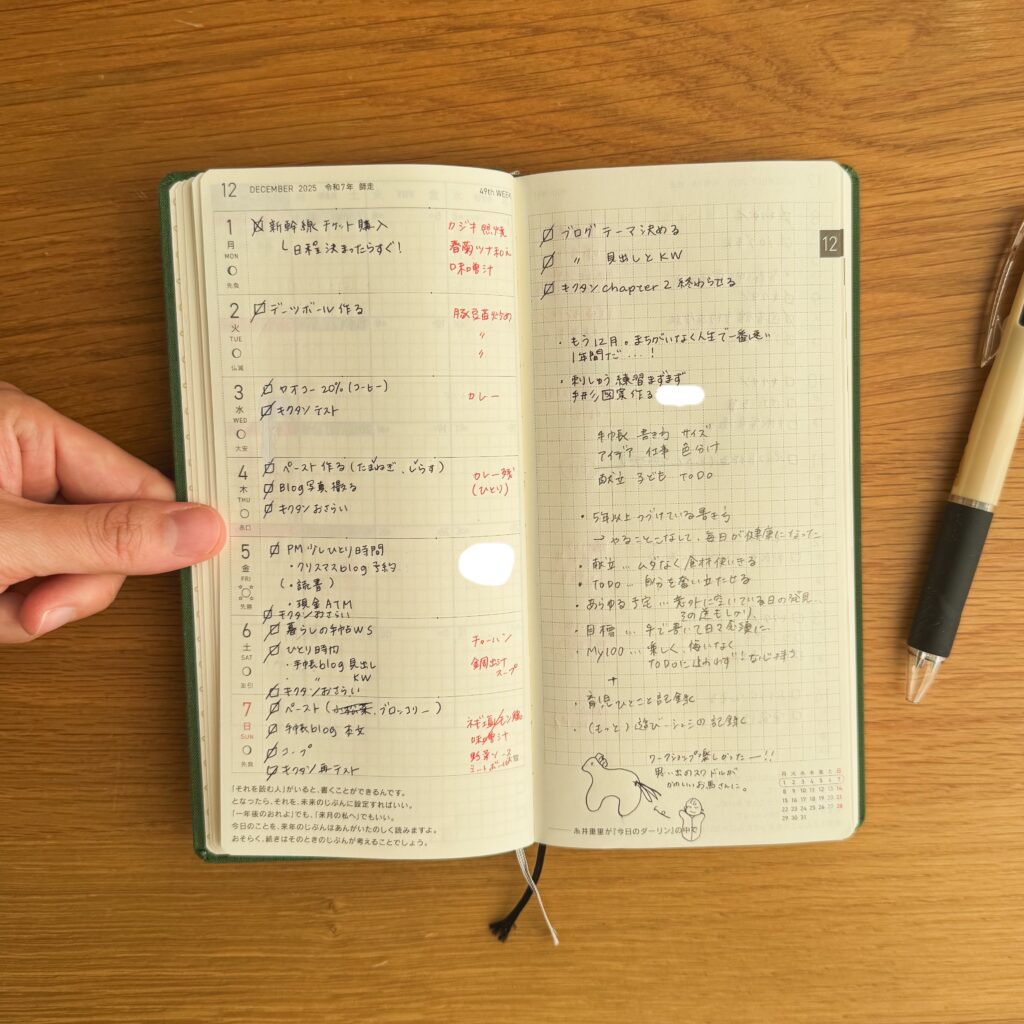 12 DECEMBER 2025 令和7年 師走 49th WEEK
1 月 MON 先負
新幹線チケット購入
└日程決まったらすぐ!
カジキ照焼
春菊ツナ和え
味噌汁
2 火 TUE 仏滅
デーツボール作る
豚豆苗炒め
〃
〃
3 水 WED 大安
ワオコー20%(コーヒー)
キクタンテスト
カレー
4 木 THU 赤口
ペースト作る(たまねぎ、しらす)
Blog写真撮る
キクタンおさらい
カレー残
(ひとり)
5 金 FRI 先勝
PM 少しひとり時間
・クリスマスblog予約
(・読書)
・現金ATM
キクタンおさらい
6 土 SAT 友引
暮らしの手帖WS
ひとり時間
・手帳blog見出し
・ 〃 KW
キクタンおさらい
チャーハン
鍋出汁
スープ
7 日 SUN 先負
ペースト(小松菜、ブロッコリー)
手帳blog本文
コープ
キクタン再テスト
ネギ塩レモン鍋
味噌汁
野菜ソース
ミートボール
「それを読む人」がいると、書くことができるんです。
となったら、それを、未来のじぶんに設定すればいい。
「一年後のおれよ」でも、「来月の私へ」でもいい。
今日のことを、来年のじぶんはあんがいたのしく読みますよ。
おそらく、続きはそのときのじぶんが考えることでしょう。
12
ブログテーマ決める
〃 見出しとKW
キクタンchapter2終わらせる
・もう12月。まちがいなく人生で一番速い
1年間だ…!
・刺しゅう練習まずまず
図案作る
手帳 書き方 サイズ
アイデア 仕事 色分け
献立 子ども ToDo
・5年以上つづけている書き方
→やることこなして、毎日が健康になった
・献立…ムダなく食材使いきる
・ToDo…自分を奮い立たせる
・あらゆる予定…意外に空いている日の発見、
その逆もしかり、
・目標…手で書いて日々
・My100…楽しく、悔いなく
ToDoに追われず!
+
・育児ひとこと記録
・(もっと)遊び の記録
ワークショップ楽しかったー!!
思い出のスワドルが
かわいいお馬さんに。
月 火 水 木 金 土 日
1 2 3 4 5 6 7
8 9 10 11 12 13 14
15 16 17 18 19 20 21
22 23 24 25 26 27 28
29 30 31
糸井重里が『今日のダーリン』の中で